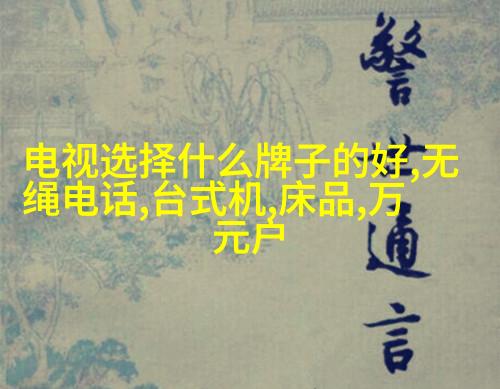 电视选择什么牌子的好,无
绳电话,台式机,床品,万
元户
警世通言